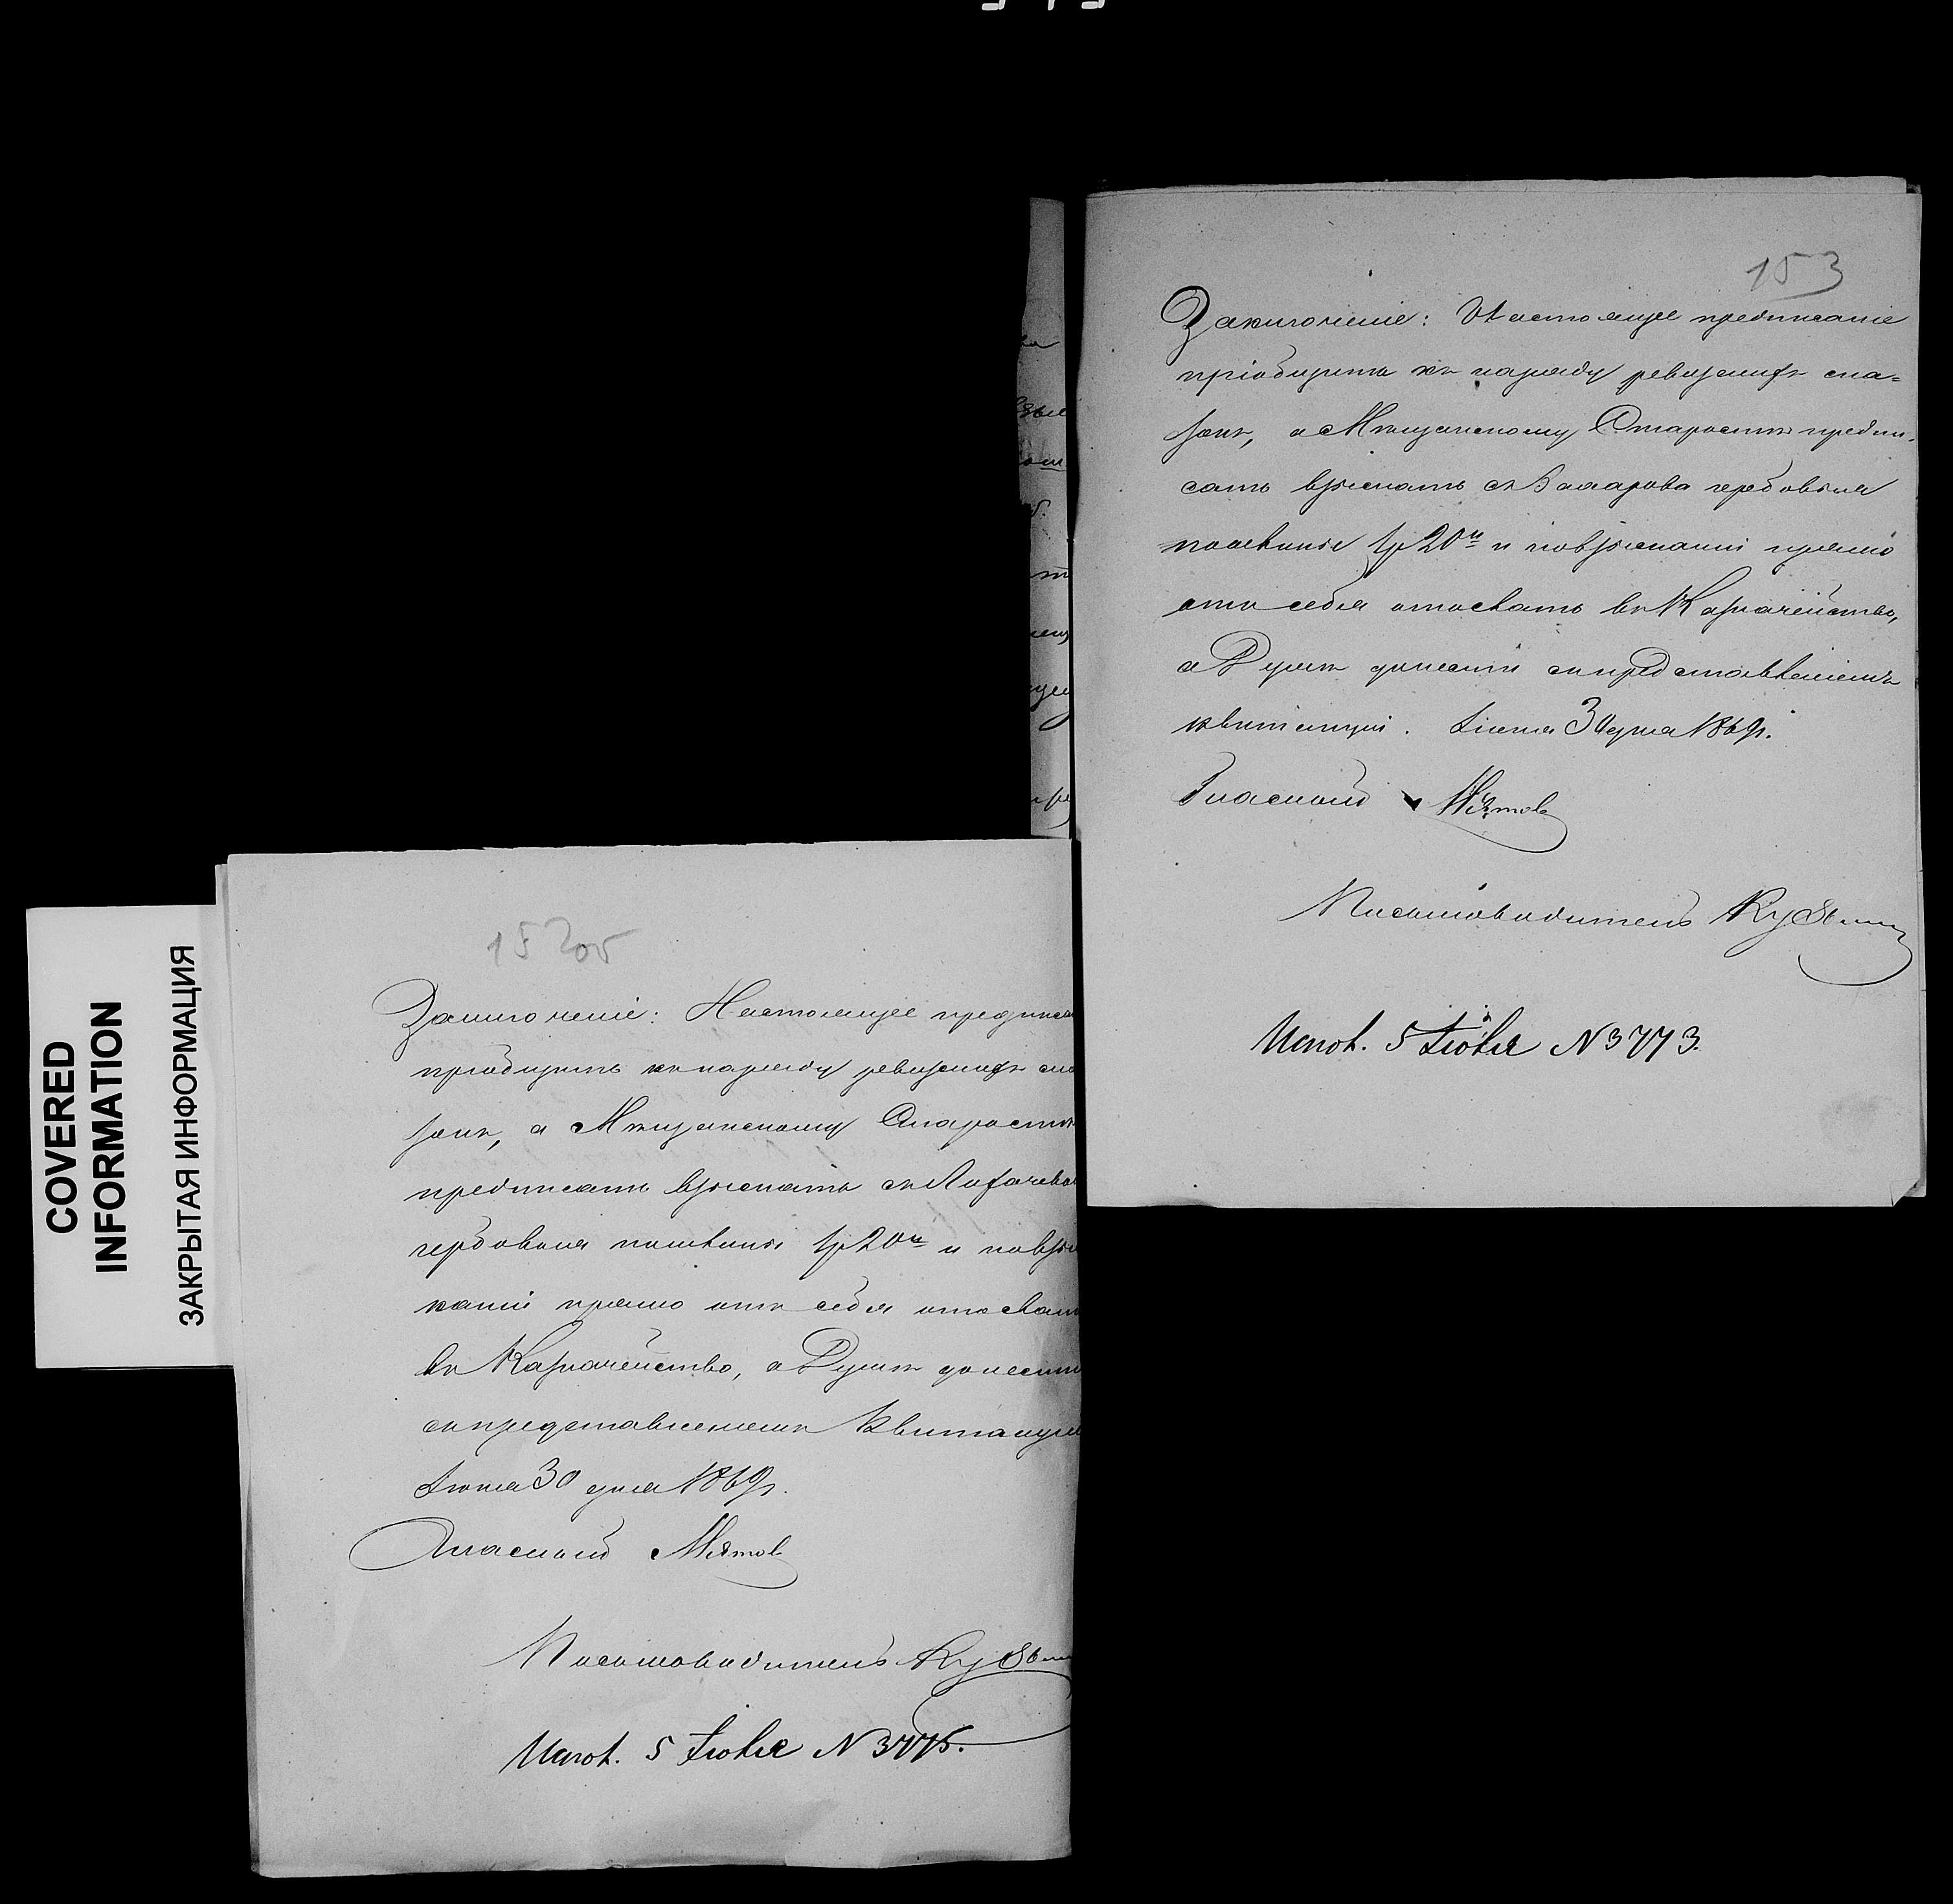 153
Заключеніе: Настоящее предписаніе
пріобщить къ наряду ревизскихъ ска=
зокъ, а Мѣщанскому Старостѣ предпи-
сать взыскать съ гербовыя
пошлины 1р 20к и по взысканіи прямо
отъ себя отослать въ Казначейство,
а Думѣ донести съ представленіемъ
квитанціи. Іюня 30 дня 1869г.
Гласный
Письмоводитель
Испол. 5 Іюля N 3773.
153об
Заключеніе: Настоящее предписа
пріобщить къ наряду ревизскихъ ска
зокъ, а Мѣщанскому Старостѣ
предписать взыскать съ Лихачева
гербовыя пошлины 1р 20к и по взыс
каніи прямо отъ себя отослать
въ Казначейство, а Думѣ донести
съ представленіемъ квитанціи
Іюня 30 дня 1869г.
Гласный
Письмоводитель
Испол. 5 Іюля N 3775.
COVERED
INFORMATION
ЗАКРЫТАЯ ИНФОРМАЦИЯ